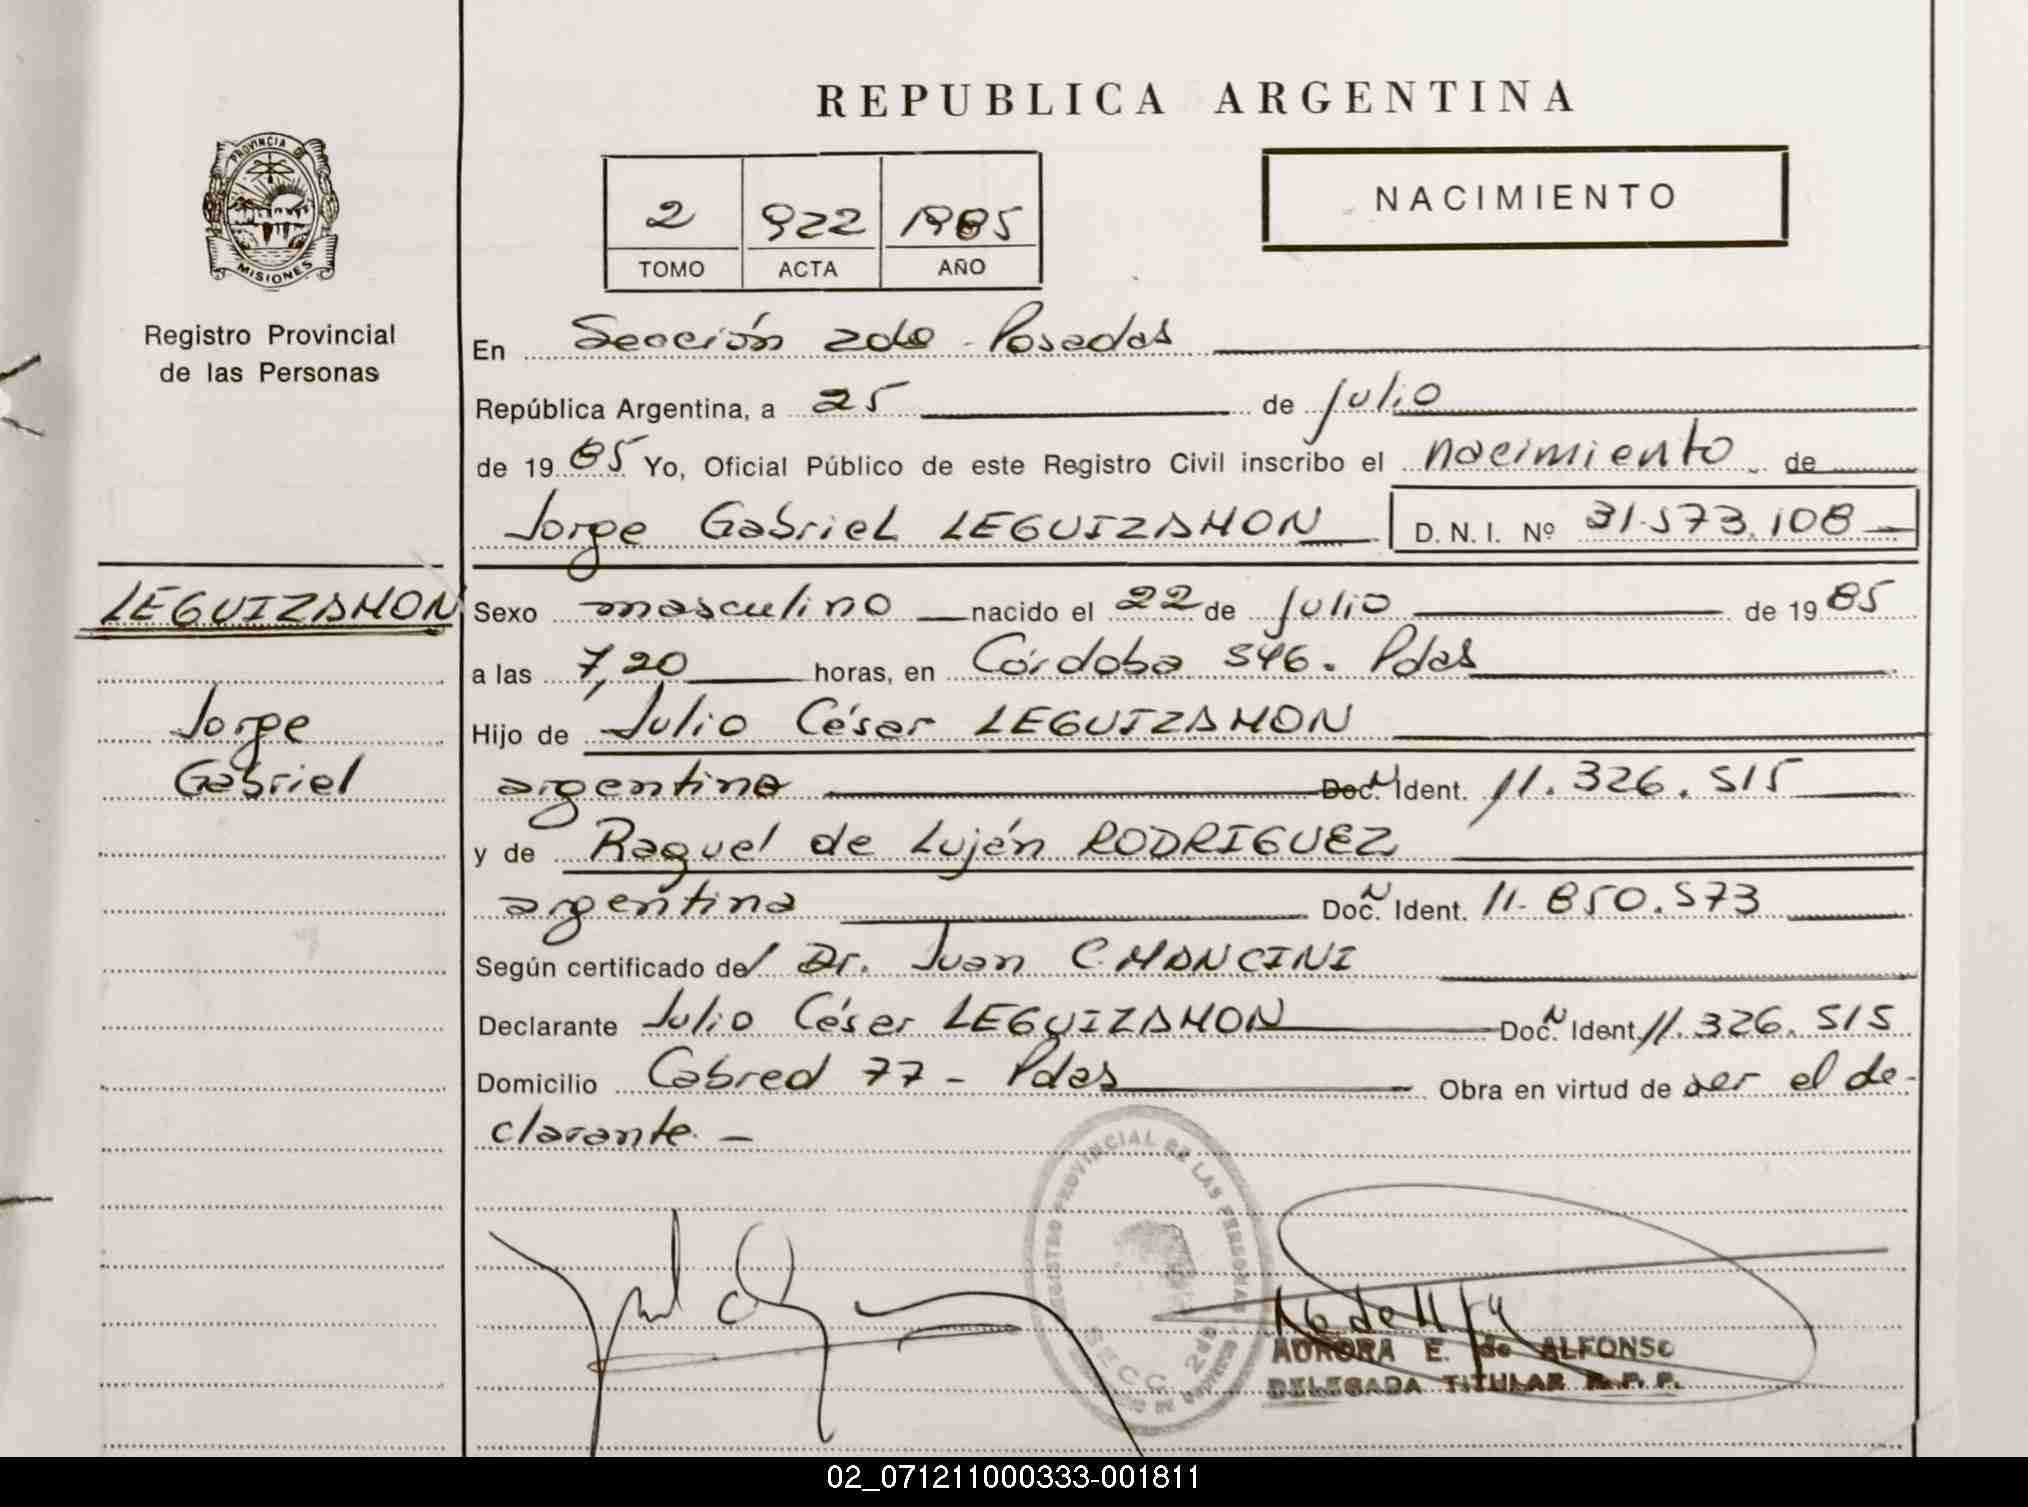 REPUBLICA ARGENTINA
PROVINCIA DE
MISIONES
Registro Provincial
de las Personas
2 922 1985
TOMO ACTA AÑO
NACIMIENTO
En Sección 2da - Posadas
República Argentina, a 25 de julio
de 1985 Yo, Oficial Público de este Registro Civil inscribo el nacimiento de
Jorge Gabriel LEGUIZAMON D. N. I. Nº 31.573.108
LEGUIZAMON
Jorge
Gabriel
Sexo masculino nacido el 22 de julio de 1985
a las 7,20 horas, en Córdoba 546. Pdas
Hijo de Julio César LEGUIZAMON
argentino Doc. N Ident. 11.326.515
y de Raquel de Luján RODRIGUEZ
argentina Doc. N Ident. 11.850.573
Según certificado del Dr. Juan C. MANCINI
Declarante Julio César LEGUIZAMON Doc. N Ident. 11.326.515
Domicilio Cabred 77 - Pdas Obra en virtud de ser el de-
clarante. -
REGISTRO PROVINCIAL DE LAS PERSONAS
SECC. 2da
AURORA E. de ALFONSO
DELEGADA TITULAR R. P. P.
02_071211000333-001811